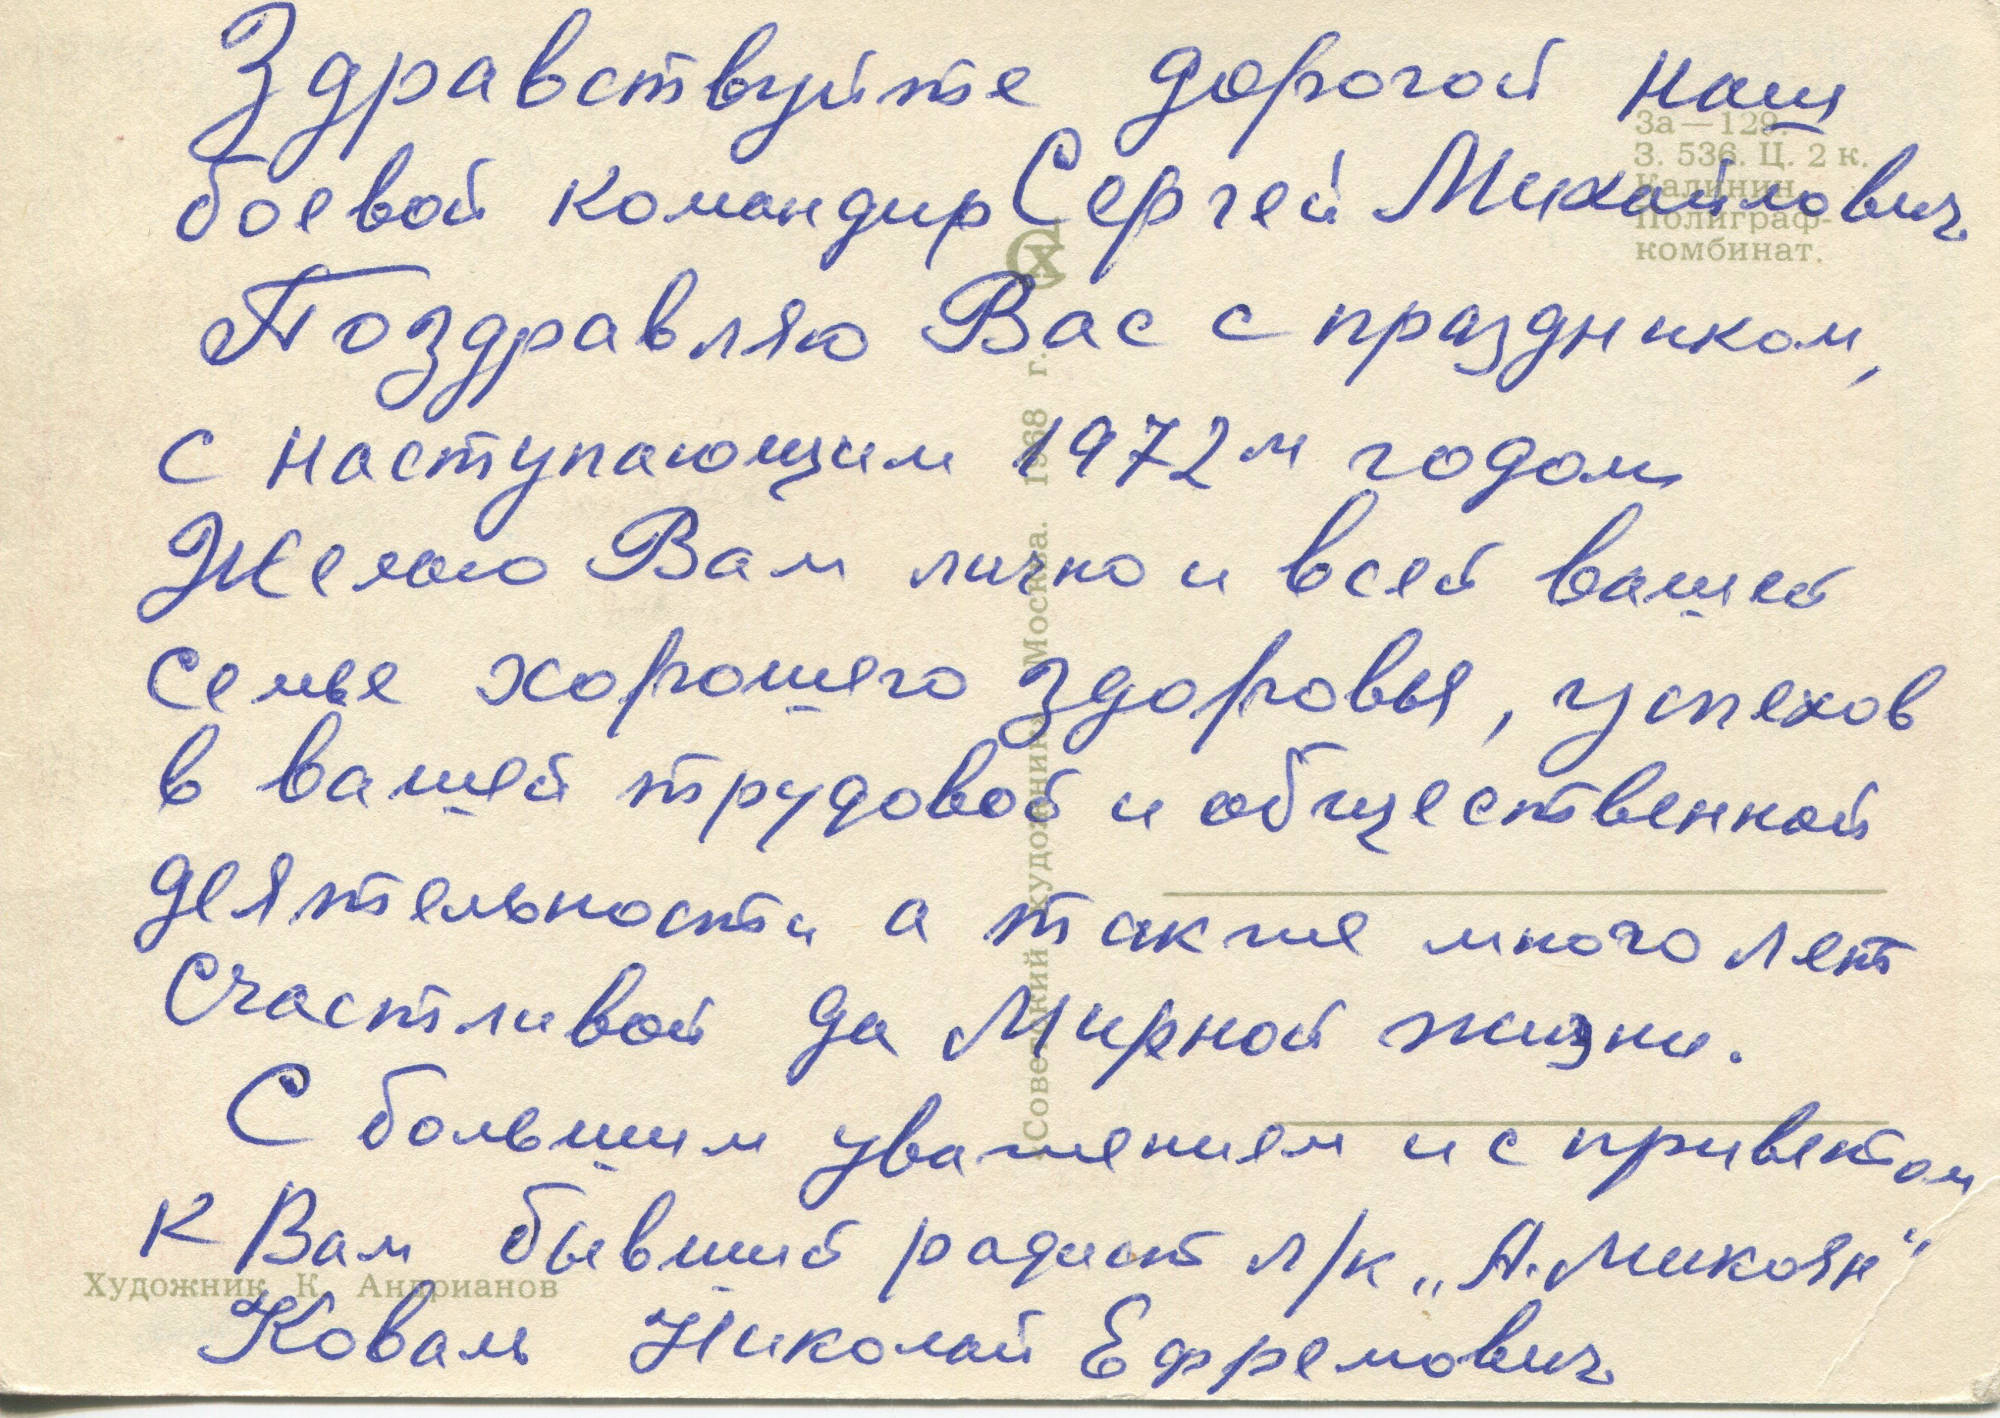 Здравствуйте дорогой наш
боевой командир Сергей Михайлович
Поздравляю Вас с праздником,
с наступающим 1972м годом
Желаю Вам лично и всей вашей
семье хорошего здоровья, успехов
в вашей трудовой и общественной
деятельности а также много лет
счастливой да Мирной жизни.
С большим уважением и с приветом
к Вам бывший радист л/к „А. Микоян“
Коваль Николай Ефремович
За—129.
З. 536. Ц. 2 к.
Калинин.
Полиграф-
комбинат.
«Советский художник» Москва. 1968 г.
Художник К. Андрианов